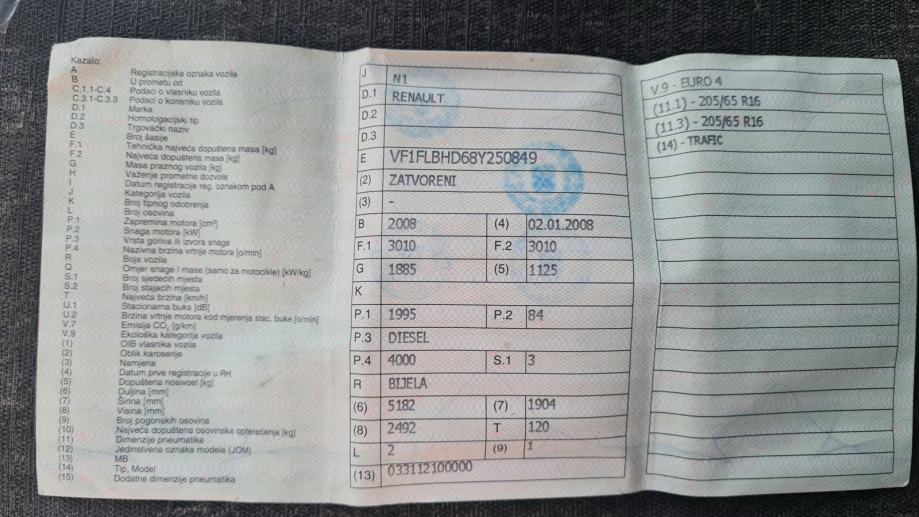 Kazalo:
A Registracijska oznaka vozila
B U prometu od
C.1.1-C.4 Podaci o vlasniku vozila
C.3.1-C.3.3 Podaci o korisniku vozila
D.1 Marka
D.2 Homologacijski tip
D.3 Trgovački naziv
E Broj šasije
F.1 Tehnička najveća dopuštena masa [kg]
F.2 Najveća dopuštena masa [kg]
G Masa praznog vozila [kg]
H Važenje prometne dozvole
I Datum registracije reg. oznakom pod A
J Kategorija vozila
K Broj tipnog odobrenja
L Broj osovina
P.1 Zapremina motora [cm³]
P.2 Snaga motora [kW]
P.3 Vrsta goriva ili izvora snage
P.4 Nazivna brzina vrtnje motora [o/min]
R Boja vozila
Q Omjer snage i mase (samo za motocikle) [kW/kg]
S.1 Broj sjedećih mjesta
S.2 Broj stajaćih mjesta
T Najveća brzina [km/h]
U.1 Stacionarna buka [dB]
U.2 Brzina vrtnje motora kod mjerenja stac. buke [o/min]
V.7 Emisija CO₂ [g/km]
V.9 Ekološka kategorija vozila
(1) OIB vlasnika vozila
(2) Oblik karoserije
(3) Namjena
(4) Datum prve registracije u RH
(5) Dopuštena nosivost [kg]
(6) Duljina [mm]
(7) Širina [mm]
(8) Visina [mm]
(9) Broj pogonskih osovina
(10) Najveća dopuštena osovinska opterećenja [kg]
(11) Dimenzije pneumatika
(12) Jedinstvena oznaka modela (JOM)
(13) MB
(14) Tip, Model
(15) Dodatne dimenzije pneumatika
J N1
D.1 RENAULT
D.2
D.3
E VF1FLBHD68Y250849
(2) ZATVORENI
(3) -
B 2008 (4) 02.01.2008
F.1 3010 F.2 3010
G 1885 (5) 1125
K
P.1 1995 P.2 84
P.3 DIESEL
P.4 4000 S.1 3
R BIJELA
(6) 5182 (7) 1904
(8) 2492 T 120
L 2 (9) 1
(13) 033112100000
V.9 - EURO 4
(11.1) - 205/65 R16
(11.3) - 205/65 R16
(14) - TRAFIC